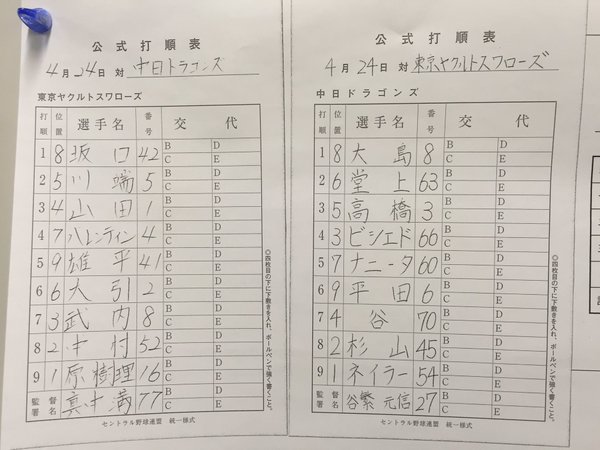 公式打順表
4月24日 対 中日ドラゴンズ
東京ヤクルトスワローズ
打順 位置 選手名 番号 交代
1 8 坂口 42 B D C E
2 5 川端 5 B D C E
3 4 山田 1 B D C E
4 7 バレンティン 4 B D C E
5 9 雄平 41 B D C E
6 6 大引 2 B D C E
7 3 武内 8 B D C E
8 2 中村 52 B D C E
9 1 原樹理 16 B D C E
監督署名 真中満 77 B D C E
セントラル野球連盟 統一様式
◎四枚目の下に下敷きを入れ、ボールペンで強く書くこと。
公式打順表
4月24日 対 東京ヤクルトスワローズ
中日ドラゴンズ
打順 位置 選手名 番号 交代
1 8 大島 8 B D C E
2 6 堂上 63 B D C E
3 5 高橋 3 B D C E
4 3 ビシエド 66 B D C E
5 7 ナニータ 60 B D C E
6 9 平田 6 B D C E
7 4 谷 70 B D C E
8 2 杉山 45 B D C E
9 1 ネイラー 54 B D C E
監督署名 谷繁元信 27 B D C E
セントラル野球連盟 統一様式
◎四枚目の下に下敷きを入れ、ボールペンで強く書くこと。